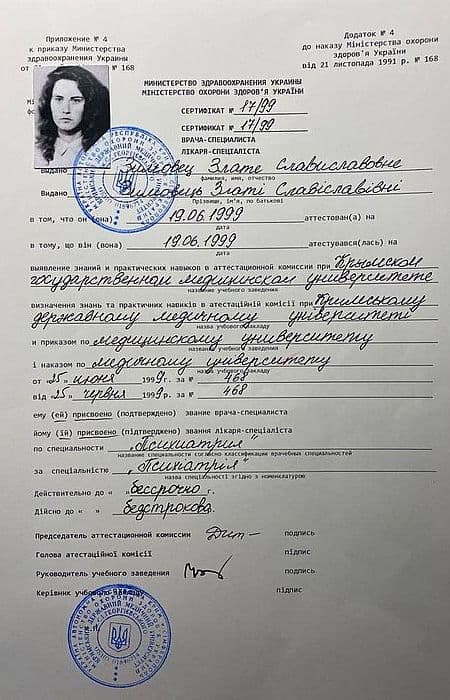 Приложение № 4
к приказу Министерства
здравоохранения Украины
от № 168
Додаток № 4
до наказу Міністерства охорони
здоров'я України
від 21 листопада 1991 р. № 168
МИНИСТЕРСТВО ЗДРАВООХРАНЕНИЯ УКРАИНЫ
МІНІСТЕРСТВО ОХОРОНИ ЗДОРОВ'Я УКРАЇНИ
СЕРТИФІКАТ № 17/99
СЕРТИФИКАТ № 17/99
ВРАЧА-СПЕЦИАЛИСТА
ЛІКАРЯ-СПЕЦІАЛІСТА
Выдано Злате Славиславовне
фамилия, имя, отчество
Видано Златі Славіславівні
Прізвище, ім'я, по батькові
в том, что он (она) 19.06.1999 аттестован(а) на
дата
в тому, що він (вона) 19.06.1999 атестувався(лась) на
дата
выявление знаний и практических навыков в аттестационной комиссии при Крымском
государственном медицинском университете
название учебного заведения
визначення знань та практичних навіків в атестаційній комісії при Кримському
державному медичному університеті
назва учбового закладу
и приказом по медицинскому университету
название учебного заведения
і наказом по медичному університету
назва учбового закладу
от «25» июня 1999г. за № 468
від «25» червня 1999р. за № 468
ему (ей) присвоено (подтверждено) звание врача-специалиста
йому (їй) присвоєно (підтверджено) звання лікаря-спеціаліста
по специальности „Психиатрия"
название специальности согласно классификации врачебных специальностей
за спеціальністю „Психіатрія"
назва спеціальності згідно з номенклатурою
Действительно до « „бессрочно г.
Дійсно до « » безстрокова.
Председатель аттестационной комиссии подпись
Голова атестаційної комісії підпис
Руководитель учебного заведения подпись
Керівник учбового закладу підпис